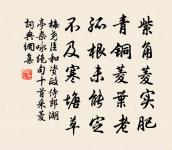 紫角菱实肥
青铜菱叶老
孤根未能定
不及寒塘草
梅尧臣和资政侍郎湖
亭杂咏绝句十首采菱
词典网集